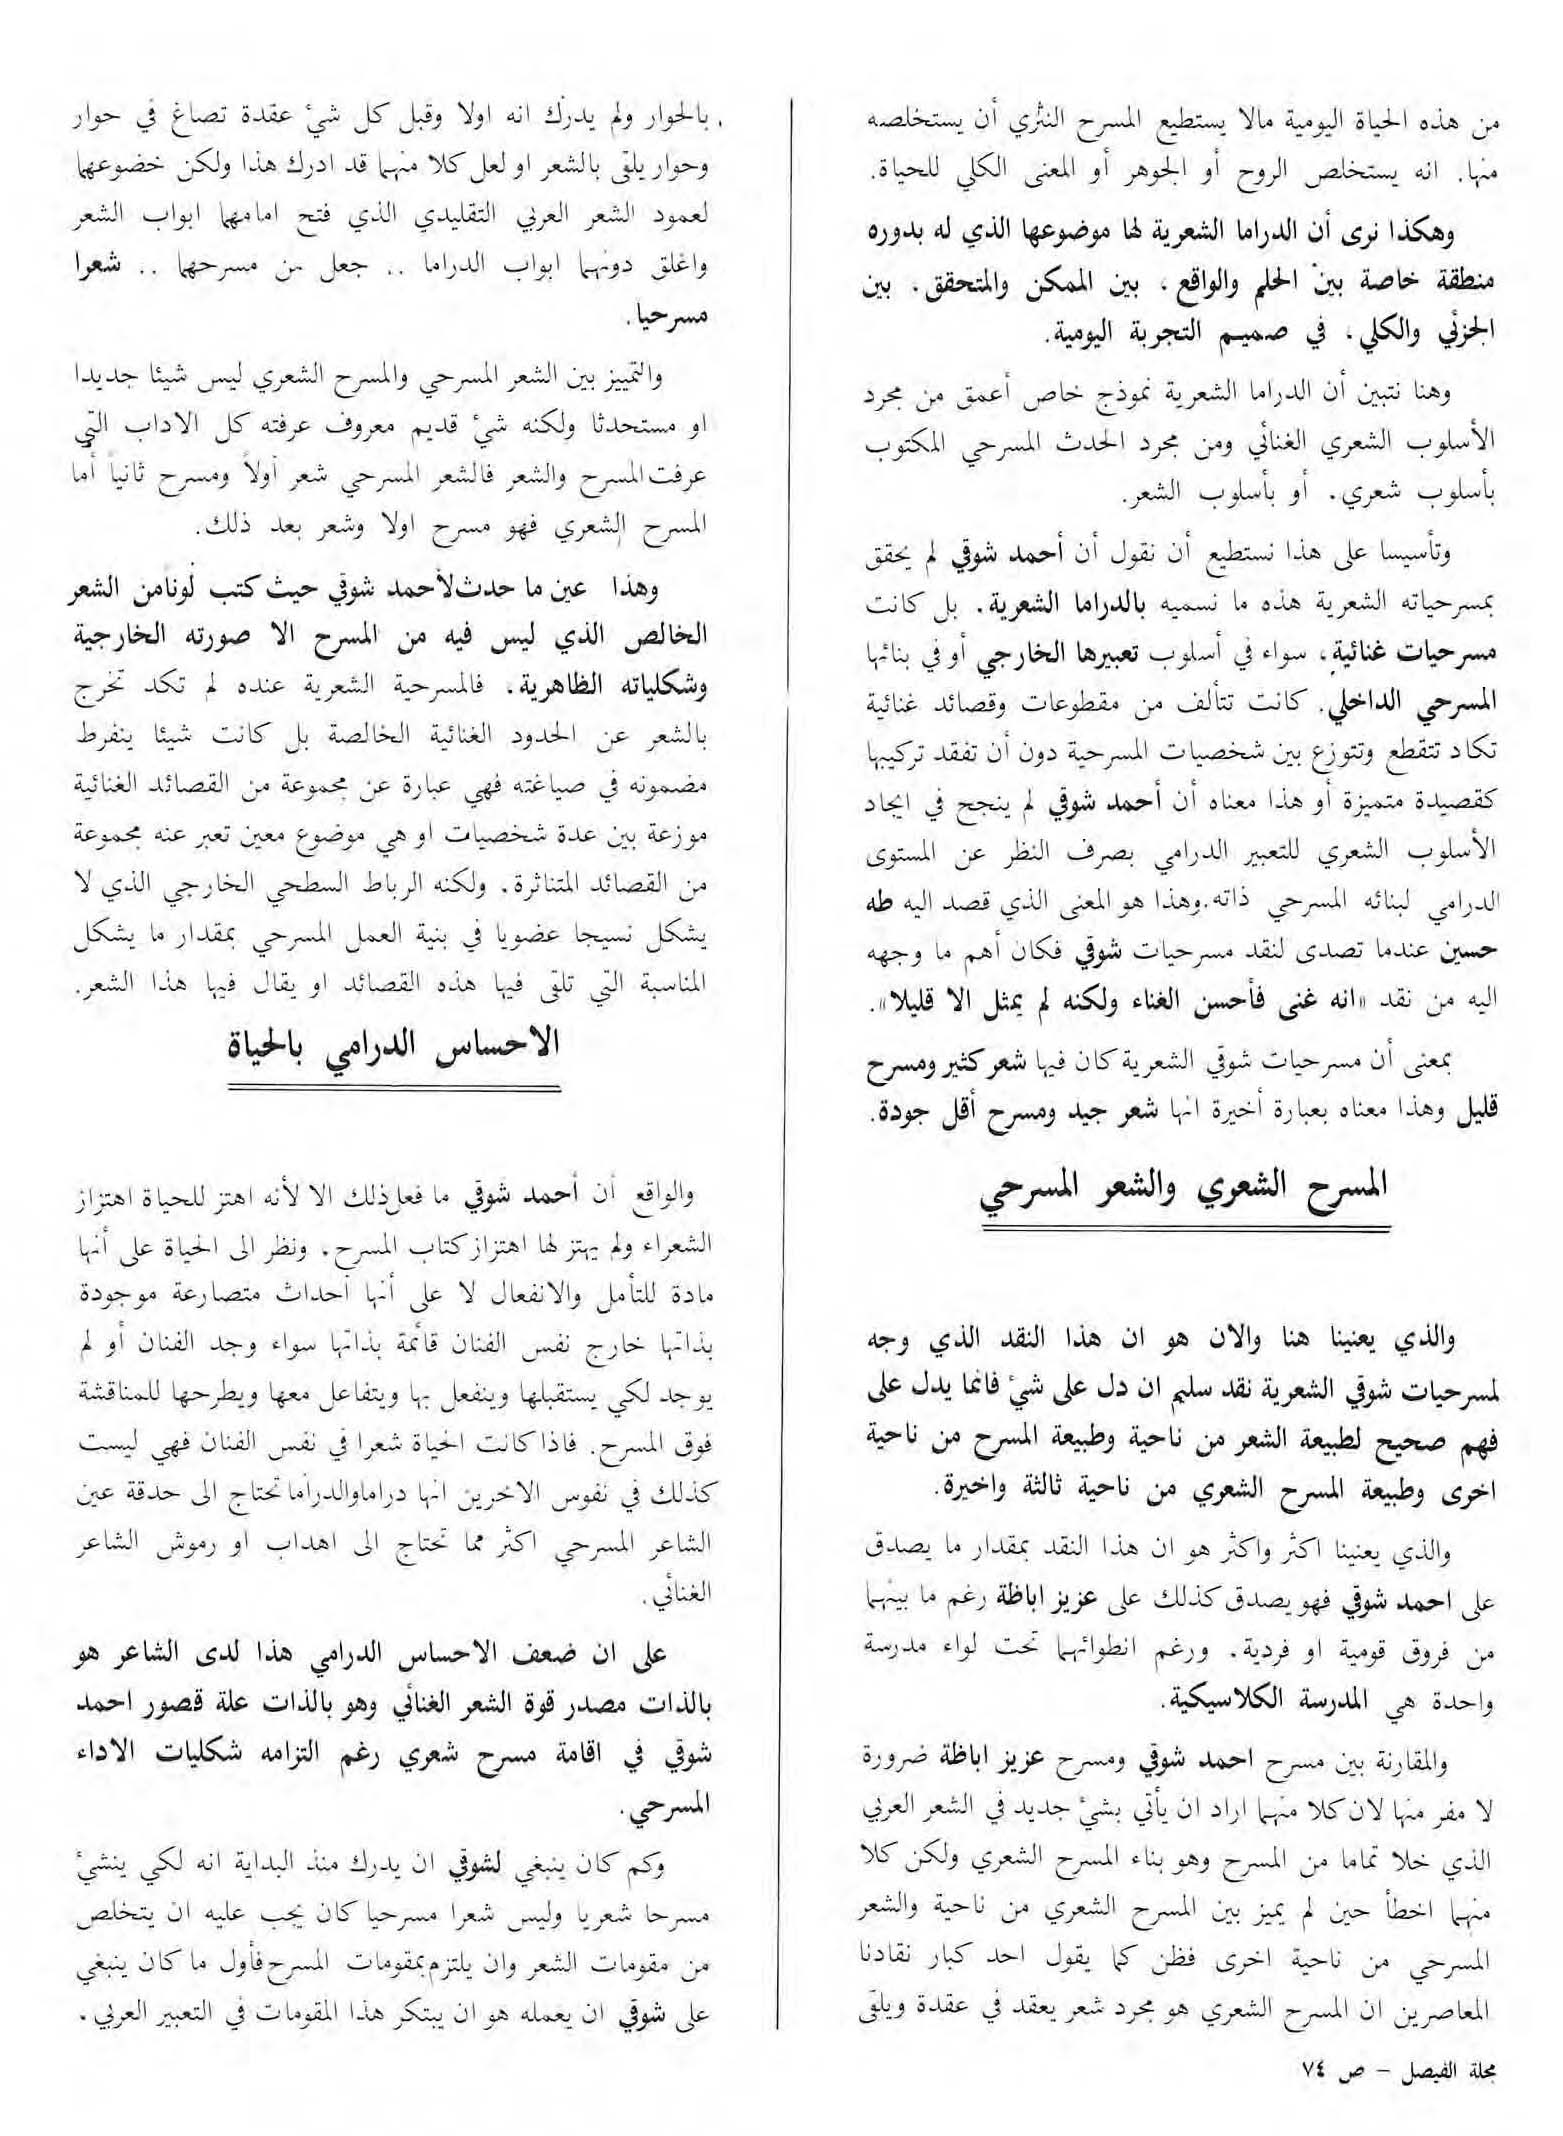 من هذه الحياة اليومية مالا يستطيع المسرح النثري أن يستخلصه
منها. انه يستخلص الروح أو الجوهر أو المعنى الكلي للحياة.
وهكذا نرى أن الدراما الشعرية لها موضوعها الذي له بدوره
منطقة خاصة بين الحلم والواقع، بين الممكن والمتحقق، بين
الجزئي والكلي، في صميم التجربة اليومية.
وهنا نتبين أن الدراما الشعرية نموذج خاص أعمق من مجرد
الأسلوب الشعري الغنائي ومن مجرد الحدث المسرحي المكتوب
بأسلوب شعري. أو بأسلوب الشعر.
وتأسيسا على هذا نستطيع أن نقول أن أحمد شوقي لم يحقق
بمسرحياته الشعرية هذه ما نسميه بالدراما الشعرية. بل كانت
مسرحيات غنائية، سواء في أسلوب تعبيرها الخارجي أو في بنائها
المسرحي الداخلي. كانت تتألف من مقطوعات وقصائد غنائية
تكاد تتقطع وتتوزع بين شخصيات المسرحية دون أن تفقد تركيبها
كقصيدة متميزة أو هذا معناه أن أحمد شوقي لم ينجح في ايجاد
الأسلوب الشعري للتعبير الدرامي بصرف النظر عن المستوى
الدرامي لبنائه المسرحي ذاته.وهذا هو المعنى الذي قصد اليه طه
حسين عندما تصدى لنقد مسرحيات شوقي فكان أهم ما وجهه
اليه من نقد «انه غنى فأحسن الغناء ولكنه لم يمثل الا قليلا».
بمعنى أن مسرحيات شوقي الشعرية كان فيها شعر كثير ومسرح
قليل وهذا معناه بعبارة أخيرة انها شعر جيد ومسرح أقل جودة.
المسرح الشعري والشعر المسرحي
والذي يعنينا هنا والان هو ان هذا النقد الذي وجه
لمسرحيات شوقي الشعرية نقد سليم ان دل على شيء فانما يدل على
فهم صحيح لطبيعة الشعر من ناحية وطبيعة المسرح من ناحية
اخرى وطبيعة المسرح الشعري من ناحية ثالثة واخيرة.
والذي يعنينا اكثر واكثر هو ان هذا النقد بمقدار ما يصدق
على احمد شوقي فهو يصدق كذلك على عزيز اباظة رغم ما بينهما
من فروق قومية او فردية. ورغم انطوائهما تحت لواء مدرسة
واحدة هي المدرسة الكلاسيكية.
والمقارنة بين مسرح احمد شوقي ومسرح عزيز اباظة ضرورة
لا مفر منها لان كلا منهما اراد ان يأتي بشيء جديد في الشعر العربي
الذي خلا تماما من المسرح وهو بناء المسرح الشعري ولكن كلا
منهما اخطأ حين لم يميز بين المسرح الشعري من ناحية والشعر
المسرحي من ناحية اخرى فظن كما يقول احد كبار نقادنا
المعاصرين ان المسرح الشعري هو مجرد شعر يعقد في عقدة ويلقى
مجلة الفيصل - ص ٧٤
بالحوار ولم يدرك انه اولا وقبل كل شيء عقدة تصاغ في حوار
وحوار يلقى بالشعر او لعل كلا منهما قد ادرك هذا ولكن خضوعهما
لعمود الشعر العربي التقليدي الذي فتح امامهما ابواب الشعر
واغلق دونهما ابواب الدراما .. جعل من مسرحهما .. شعرا
مسرحيا.
والتمييز بين الشعر المسرحي والمسرح الشعري ليس شيئا جديدا
او مستحدثا ولكنه شيء قديم معروف عرفته كل الاداب التي
عرفت المسرح والشعر فالشعر المسرحي شعر أولاً ومسرح ثانياً أما
المسرح الشعري فهو مسرح اولا وشعر بعد ذلك.
وهذا عين ما حدث لأحمد شوقي حيث كتب لوناً من الشعر
الخالص الذي ليس فيه من المسرح الا صورته الخارجية
وشكلياته الظاهرية، فالمسرحية الشعرية عنده لم تكد تخرج
بالشعر عن الحدود الغنائية الخالصة بل كانت شيئا ينفرط
مضمونه في صياغته فهي عبارة عن مجموعة من القصائد الغنائية
موزعة بين عدة شخصيات او هي موضوع معين تعبر عنه مجموعة
من القصائد المتناثرة. ولكنه الرباط السطحي الخارجي الذي لا
يشكل نسيجا عضويا في بنية العمل المسرحي بمقدار ما يشكل
المناسبة التي تلقى فيها هذه القصائد او يقال فيها هذا الشعر.
الاحساس الدرامي بالحياة
والواقع أن أحمد شوقي ما فعل ذلك الا لأنه اهتز للحياة اهتزاز
الشعراء ولم يهتز لها اهتزاز كتاب المسرح. ونظر الى الحياة على أنها
مادة للتأمل والانفعال لا على أنها أحداث متصارعة موجودة
بذاتها خارج نفس الفنان قائمة بذاتها سواء وجد الفنان أو لم
يوجد لكي يستقبلها وينفعل بها ويتفاعل معها ويطرحها للمناقشة
فوق المسرح. فاذا كانت الحياة شعرا في نفس الفنان فهي ليست
كذلك في نفوس الاخرين انها دراما والدراما تحتاج الى حدقة عين
الشاعر المسرحي اكثر مما تحتاج الى اهداب او رموش الشاعر
الغنائي.
على ان ضعف الاحساس الدرامي هذا لدى الشاعر هو
بالذات مصدر قوة الشعر الغنائي وهو بالذات علة قصور احمد
شوقي في اقامة مسرح شعري رغم التزامه شكليات الاداء
المسرحي.
وكم كان ينبغي لشوقي ان يدرك منذ البداية انه لكي ينشيء
مسرحا شعريا وليس شعرا مسرحيا كان يجب عليه ان يتخلص
من مقومات الشعر وان يلتزم بمقومات المسرح فأول ما كان ينبغي
على شوقي ان يعمله هو ان يبتكر هذا المقومات في التعبير العربي.